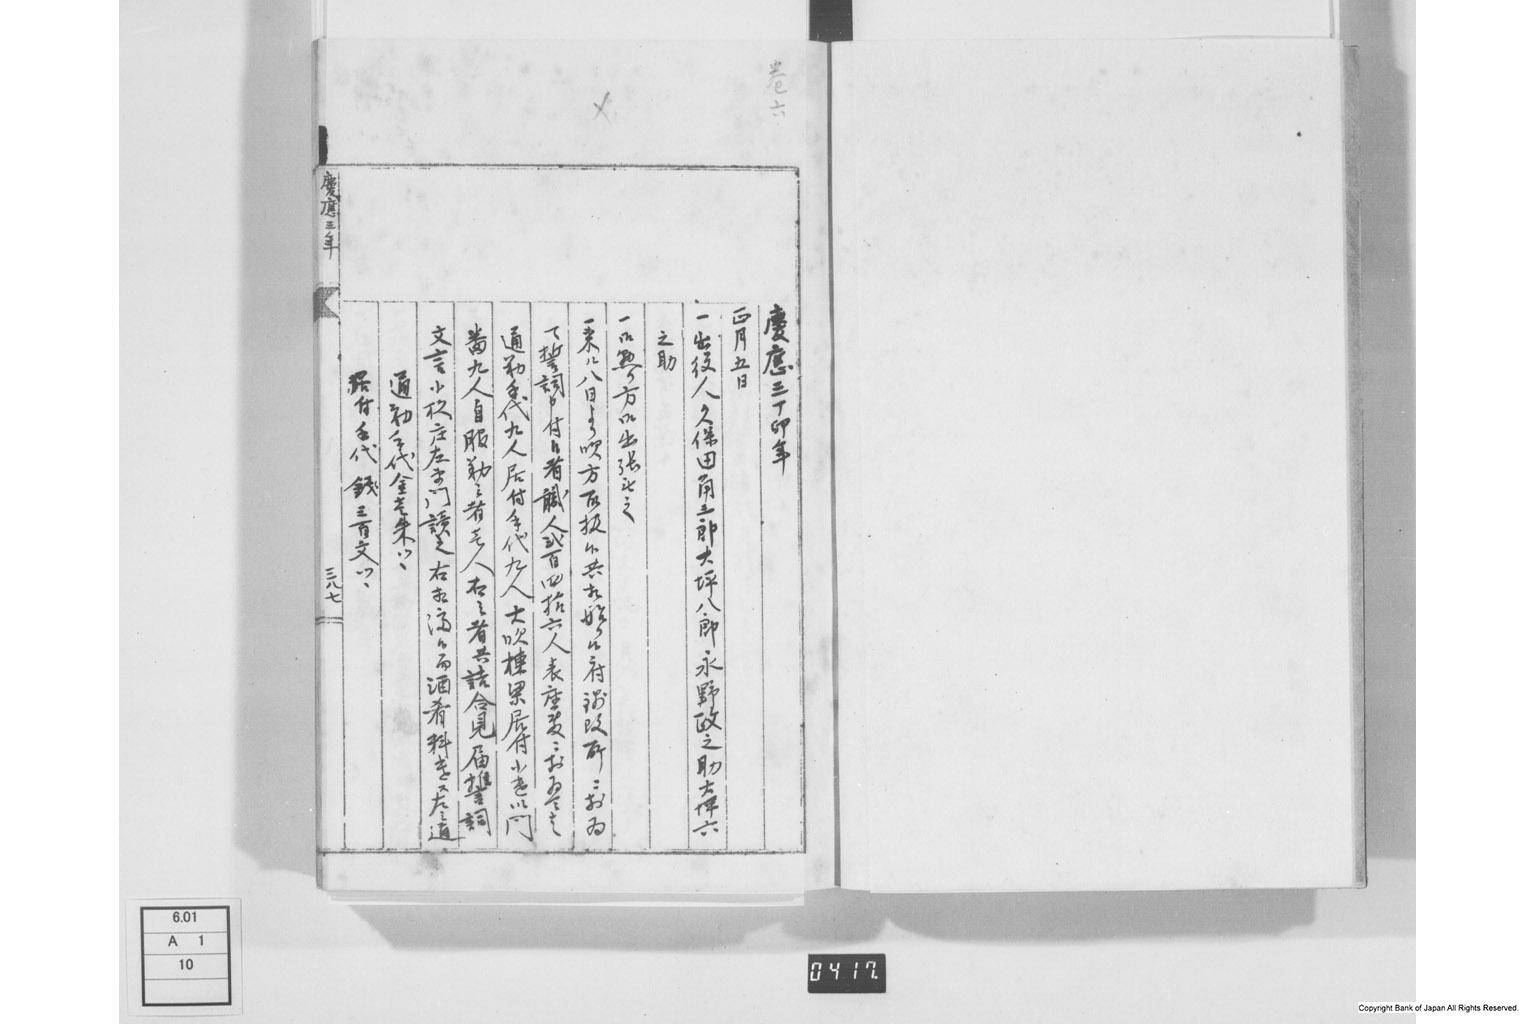 巻六
慶應三丁卯年
正月五日
一出役人久保田角三郎大坪八郎永野政之助大坪六
之助
一御熟方御出張無之
一来ル八日より吹方取扱候共相始候府調改所ニおゐ
て誓詞申付候者職人弐百四拾六人表座敷ニおゐて
通勤手代九人居付手代九人大吹棟梁居付小遣御門
番九人自服勤之者壱人右之者共詰合見届誓詞
文言小松庄左衛門読之右相済候而酒肴料差左之通
通勤手代金壱朱ツヽ
居付手代 銭三百文ツヽ
慶應三年
三八七
6.01
A 1
10
0417
Copyright Bank of Japan All Rights Reserved.